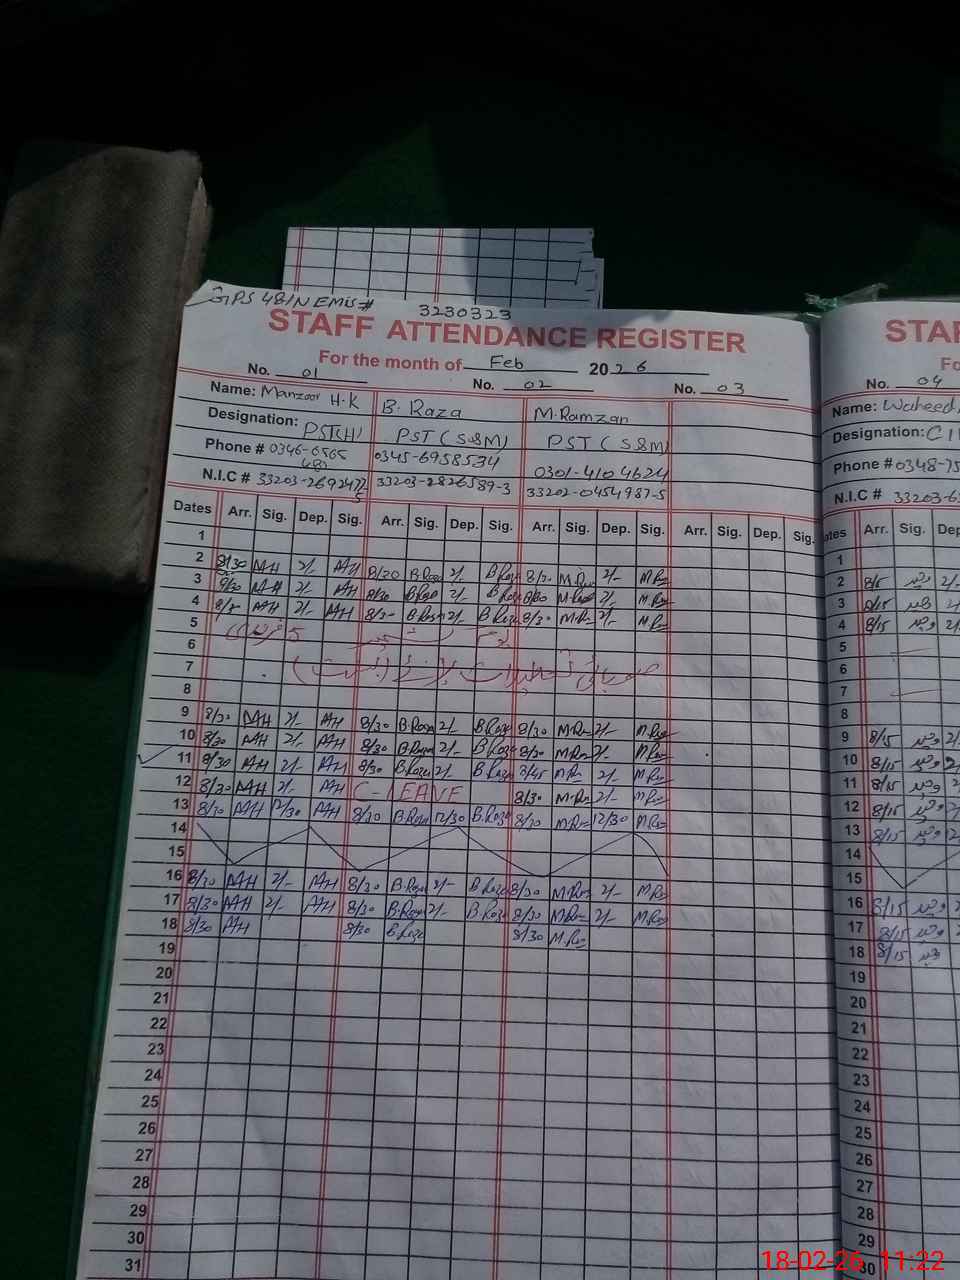 GPS 481/N EMIS# 3230323
STAFF ATTENDANCE REGISTER
For the month of Feb 2026
No. 01 No. 02 No. 03
Name: Manzoor H.K B. Raza M. Ramzan
Designation: PST(H) PST (S&M) PST (S&M)
Phone # 0346-6565 0345-6958534 0301-4104624
N.I.C # 33203-2826589-3 33202-0454987-5
Dates Arr. Sig. Dep. Sig. Arr. Sig. Dep. Sig. Arr. Sig. Dep. Sig. Arr. Sig. Dep. Sig.
1
2 8/30 MH 2/- MH 8/30 B.Raza 2/- B.Raza 8/30 M.Rm 2/- M.Rm
3 8/30 MH 2/- MH 8/30 B.Raza 2/- B.Raza 8/30 M.Rm 2/- M.Rm
4 8/30 MH 2/- MH 8/30 B.Raza 2/- B.Raza 8/30 M.Rm 2/- M.Rm
5 5 فروری یوم کشمیر
6
7
8
9 8/30 MH 2/- MH 8/30 B.Raza 2/- B.Raza 8/30 M.Rm 2/- M.Rm
10 8/30 MH 2/- MH 8/30 B.Raza 2/- B.Raza 8/30 M.Rm 2/- M.Rm
11 8/30 MH 2/- MH 8/30 B.Raza 2/- B.Raza 8/45 M.Rm 2/- M.Rm
12 8/30 MH 2/- MH C-LEAVE 8/30 M.Rm 2/- M.Rm
13 8/30 MH 12/30 MH 8/30 B.Raza 12/30 B.Raza 8/30 M.Rm 12/30 M.Rm
14
15
16 8/30 MH 2/- MH 8/30 B.Raza 2/- B.Raza 8/30 M.Rm 2/- M.Rm
17 8/30 MH 2/- MH 8/30 B.Raza 2/- B.Raza 8/30 M.Rm 2/- M.Rm
18 8/30 MH 8/30 B.Raza 8/30 M.Rm
19
20
21
22
23
24
25
26
27
28
29
30
31
STAF
No. 04
Name: Waheed
Designation:
Phone # 0348-75
N.I.C # 33203-6
Arr. Sig. D
1
2 8/15 وحید 2/-
3 8/15 وحید 2/
4 8/15 وحید 2/
5
6
7
8
9 8/15 وحید 2/
10 8/15 وحید 2
11 8/15 وحید 2
12 8/15 وحید
13 8/15 وحید 12
14
15
16 8/15 وحید 2
17 8/15 وحید 2
18 8/15 وحید
19
20
21
22
23
24
25
26
27
28
29
30
18-02-26 11:22